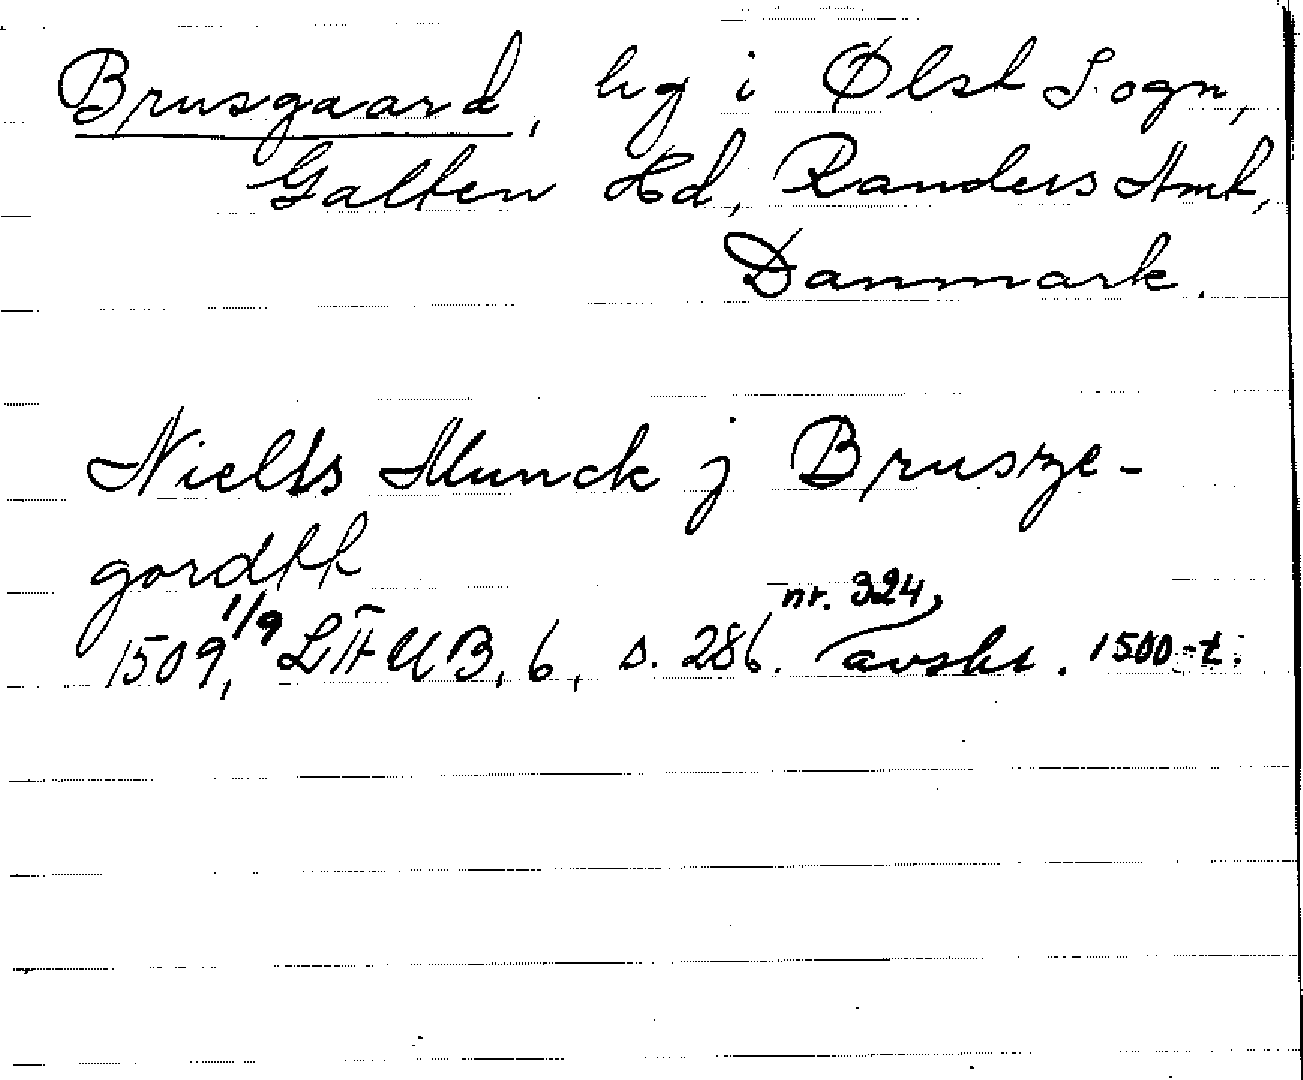 Brusgaard, lig i Ølst Sogn,
Galten Hd, Randers Amt,
Danmark.
Nielss Munck j Brusze-
gordtt
nr. 324,
1509, 1/9 LÆUB, 6, s. 286. avskr. 1500-t.